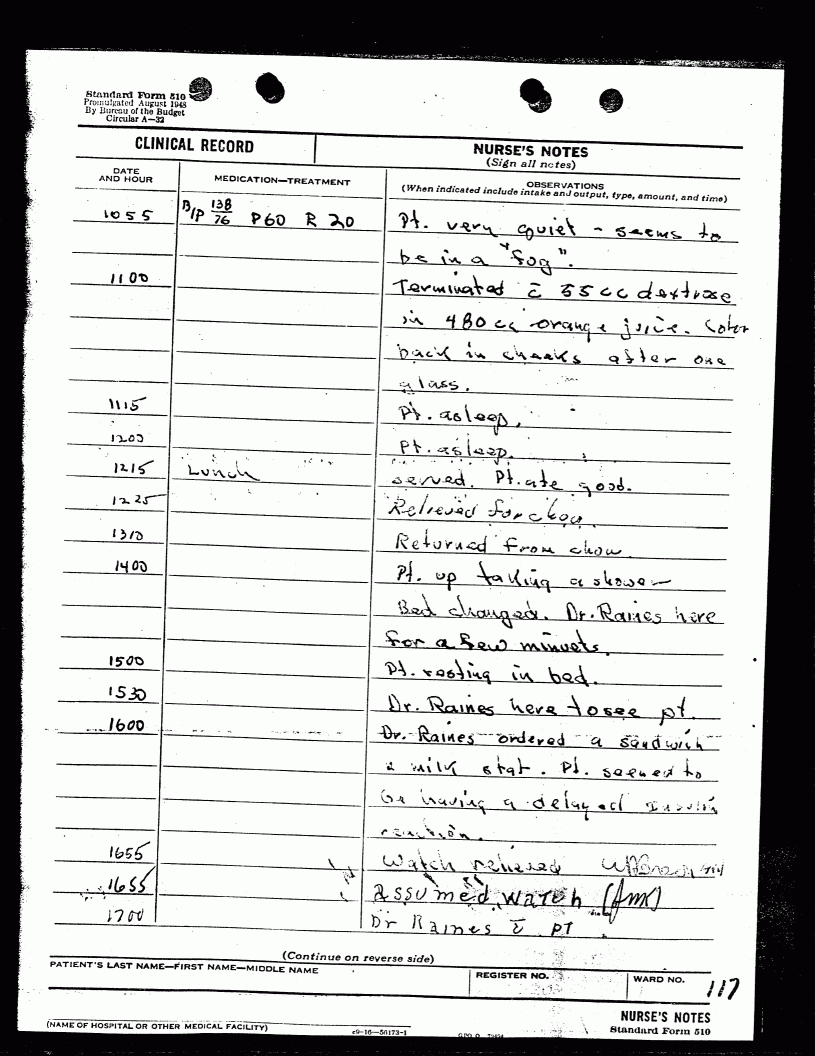 Standard Form 510
Promulgated August 1948
By Bureau of the Budget
Circular A—32
CLINICAL RECORD
NURSE'S NOTES
(Sign all notes)
DATE AND HOUR
MEDICATION—TREATMENT
OBSERVATIONS
(When indicated include intake and output, type, amount, and time)
1055 B/P 138/76 P60 R 20 Pt. very quiet - seems to
be in a "fog".
1100 Terminated c̄ 55cc dextrose
in 480 cc orange juice. Color
back in cheeks after one
glass.
1115 Pt. asleep.
1200 Pt. asleep.
1215 Lunch served. Pt. ate good.
1225 Relieved for chow.
1310 Returned from chow
1400 Pt. up taking a shower
Bed changed. Dr. Raines here
for a few minuets.
1500 Pt. resting in bed.
1530 Dr. Raines here to see pt.
1600 Dr. Raines ordered a sandwich
& milk stat. Pt. seemed to
be having a delayed insulin
reaction.
1655 Watch relieved
1655 Assumed watch (JMK)
1700 Dr Raines c̄ PT.
(Continue on reverse side)
PATIENT'S LAST NAME—FIRST NAME—MIDDLE NAME
REGISTER NO.
WARD NO.
117
(NAME OF HOSPITAL OR OTHER MEDICAL FACILITY)
c9—16—56173-1
NURSE'S NOTES
Standard Form 510